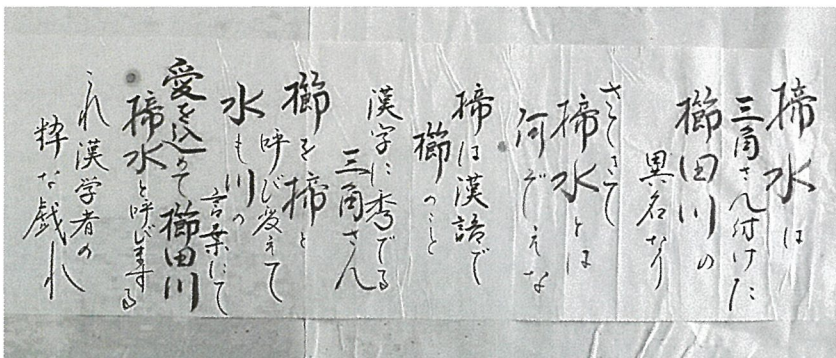 揥水は
三角さん付けた
櫛田川の
異名なり
さてさて
揥水とは
何ぞえな
揥は漢語で
櫛のこと
漢字に秀でる
三角さん
櫛を揥と
呼び変えて
水も川の
言葉にて
愛を込めて櫛田川
揥水と呼びまする
これ漢学者の
粋な戯れ